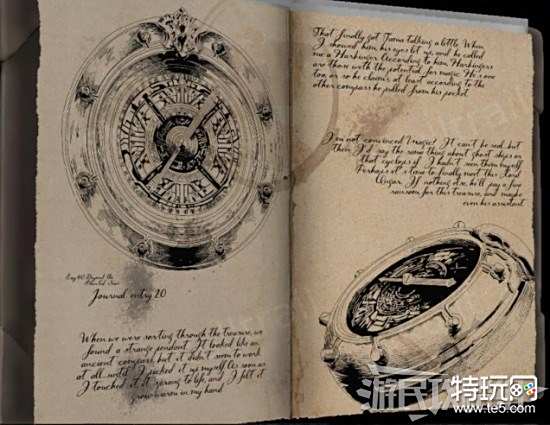 Day 40 Beyond the
Journal entry 20
When we were sorting through the treasure, we
found a strange pendant. It looked like an
ancient compass but it didn't seem to work
at all until I picked it up myself. As soon as
I touched it, it sprang to life, and I felt it
grow warm in my hand
That finally got Tooma talking a little. When
I showed him, his eyes lit up, and he called
me a Harbinger. According to him, Harbingers
are those with the potential for magic. He's one
too, or so he claims, at least according to the
other compass he pulled from his pocket.
I'm not convinced. Magic? It can't be real, but
then I'd say the same thing about ghost ships or
that cyclops if I hadn't seen them myself
Perhaps it's time to finally meet this Lord
If nothing else, he'll pay a fine
ransom for this treasure, and maybe
even his assistant
游民
特玩网
www.te5.com